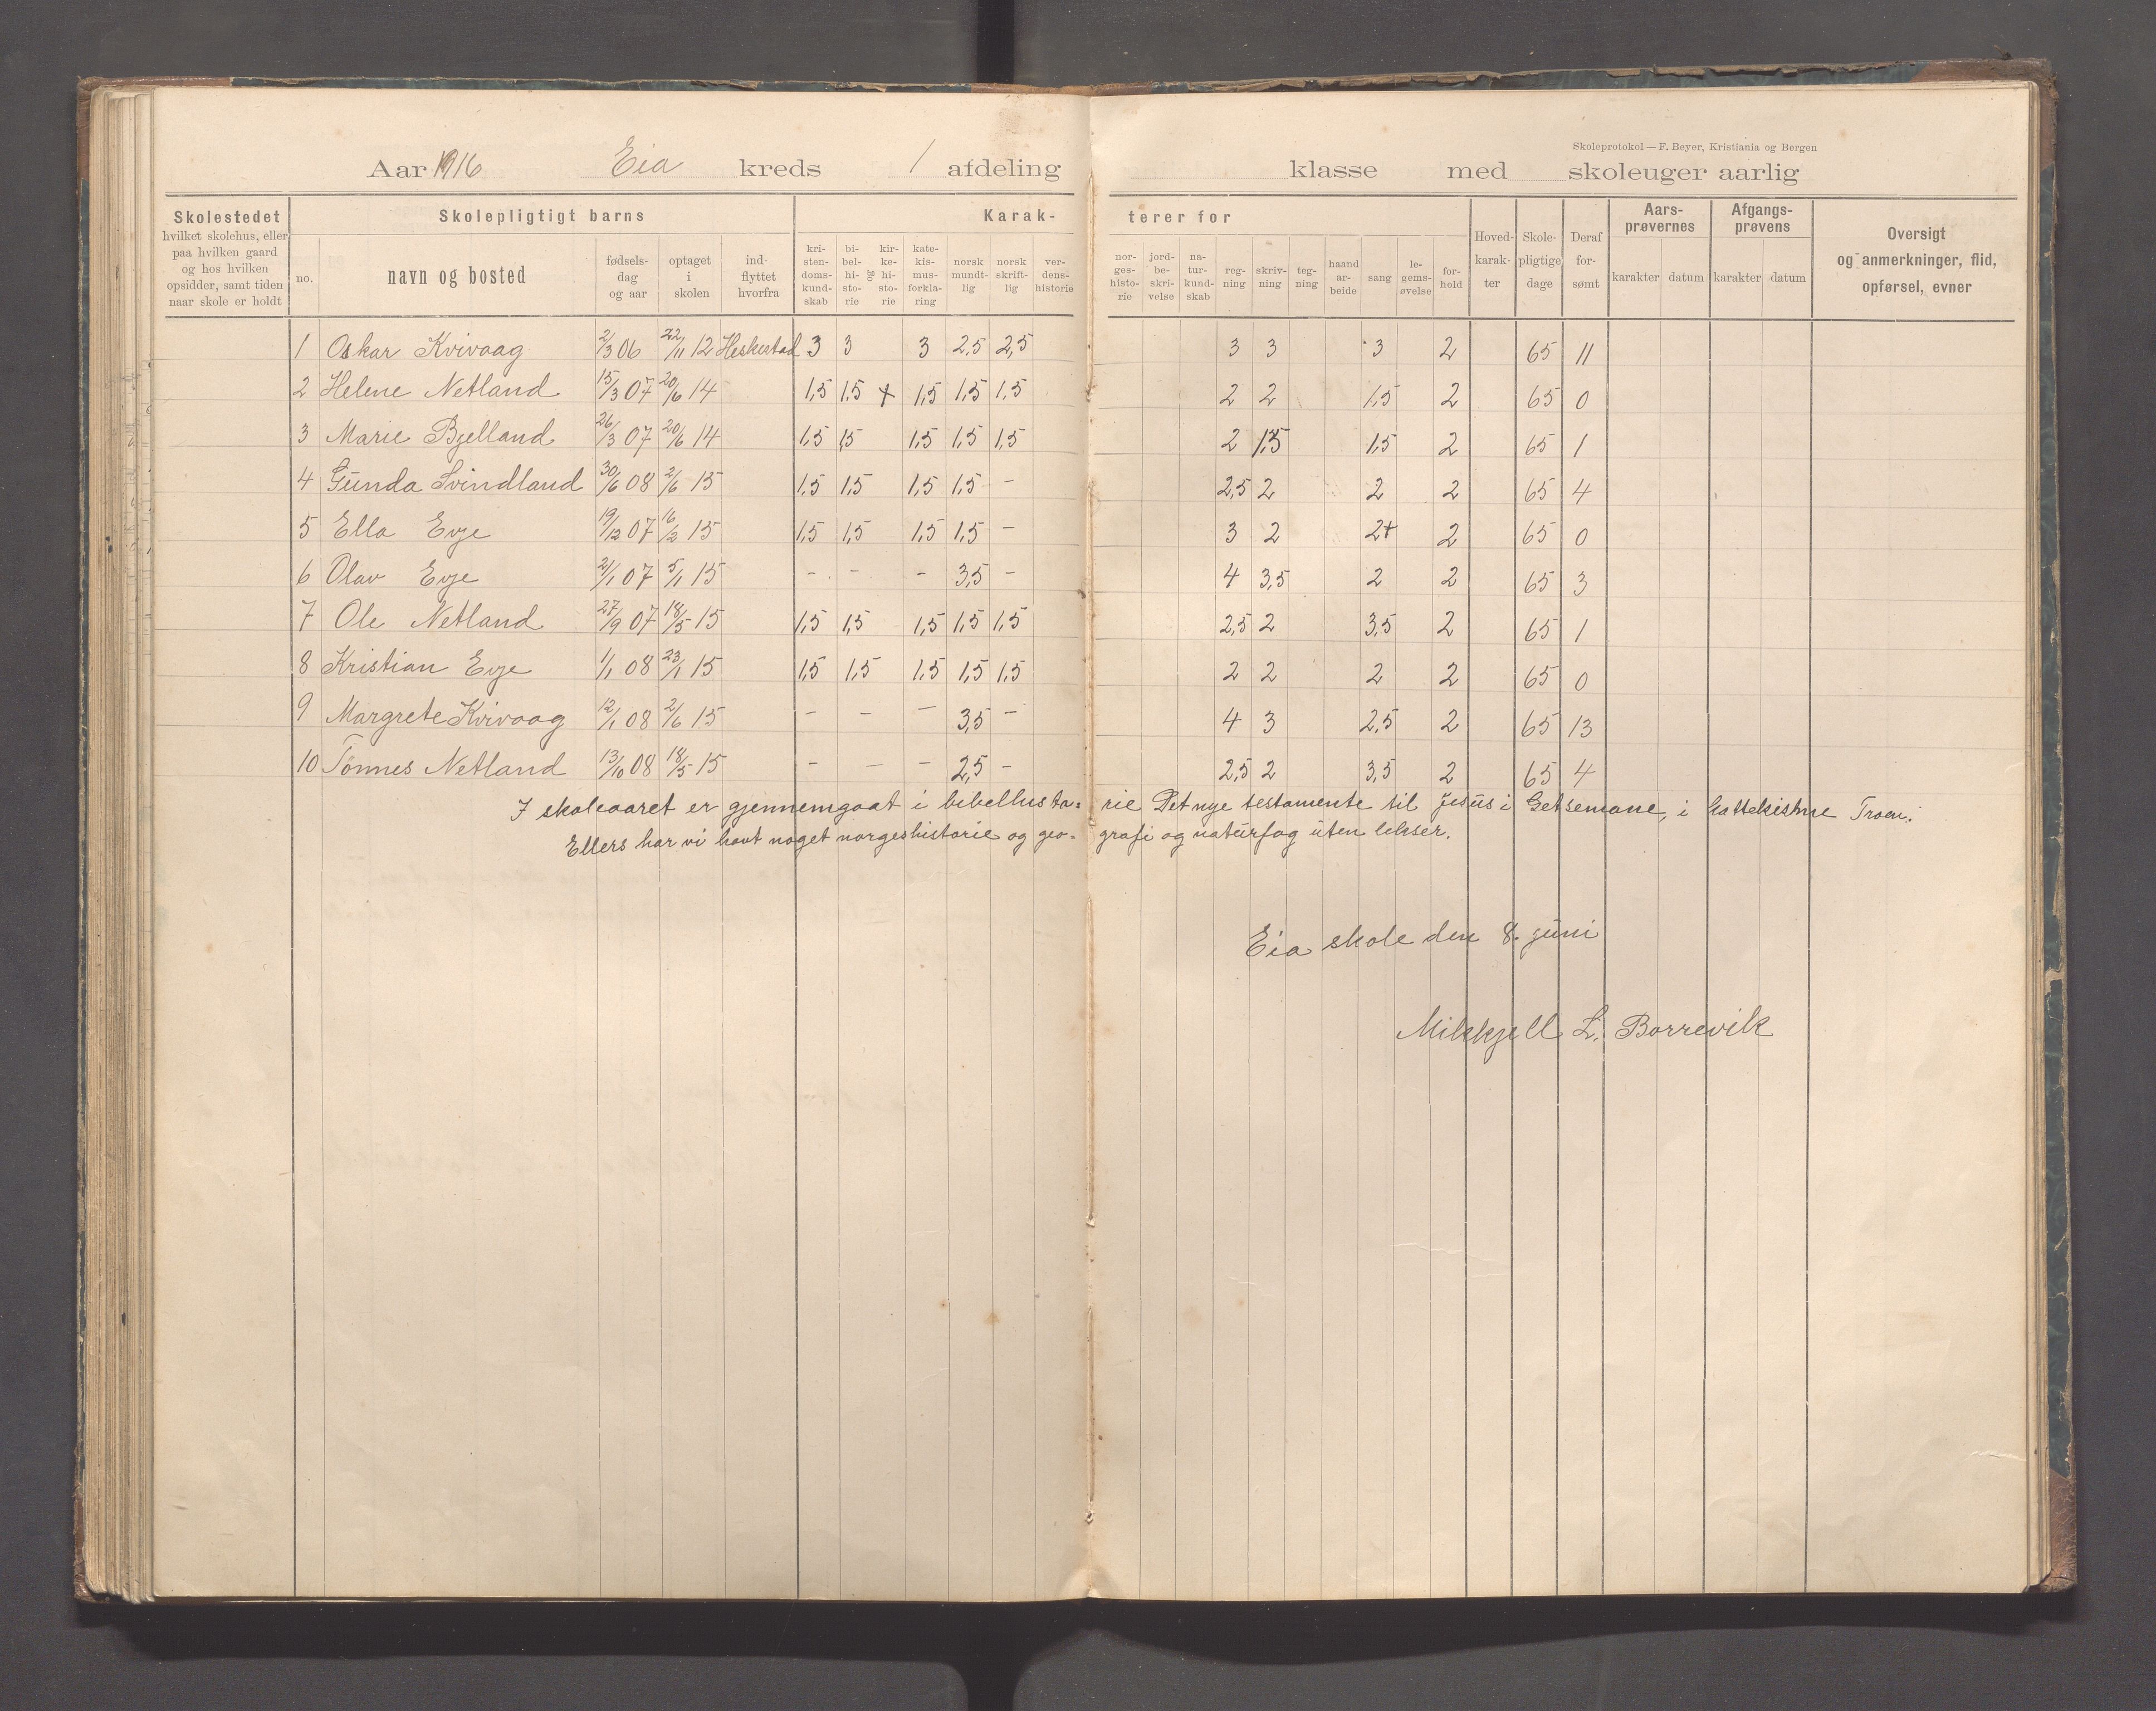 Skoleprotokol — F. Beyer, Kristiania og Bergen
Aar 1916 Eia kreds 1 afdeling klasse med skoleuger aarlig
Skolestedet hvilket skolehus, eller paa hvilken gaard og hos hvilken opsidder, samt tiden naar skole er holdt
Skolepligtigt barns
no. navn og bosted fødsels-dag og aar optaget i skolen ind-flyttet hvorfra
Karak-terer for
kri-sten-doms-kund-skab bi-bel-hi-sto-rie og kir-ke-hi-sto-rie kate-kis-mus-forkla-ring norsk mundt-lig norsk skrift-lig ver-dens-historie nor-ges-histo-rie jord-be-skri-velse na-tur-kund-skab reg-ning skriv-ning teg-ning haand ar-beide sang le-gems-øvelse for-hold
Hoved-karak-ter Skole-pligtige dage Deraf for-sømt
Aars-prøvernes karakter datum
Afgangs-prøvens karakter datum
Oversigt og anmerkninger, flid, opførsel, evner
1 Oskar Kvivaag 2/3 06 22/11 12 Heskestad 3 3 3 2,5 2,5 3 3 3 2 65 11
2 Helene Netland 15/3 07 20/6 14 1,5 1,5 + 1,5 1,5 1,5 2 2 1,5 2 65 0
3 Marie Bjelland 26/3 07 20/6 14 1,5 1,5 1,5 1,5 1,5 2 1,5 1,5 2 65 1
4 Gunda Svindland 30/6 08 2/6 15 1,5 1,5 1,5 1,5 – 2,5 2 2 2 65 4
5 Ella Evje 19/12 07 16/2 15 1,5 1,5 1,5 1,5 – 3 2 2+ 2 65 0
6 Olav Evje 2/1 07 5/1 15 – – – 3,5 – 4 3,5 2 2 65 3
7 Ole Netland 27/9 07 18/5 15 1,5 1,5 1,5 1,5 1,5 2,5 2 3,5 2 65 1
8 Kristian Evje 1/1 08 23/1 15 1,5 1,5 1,5 1,5 1,5 2 2 2 2 65 0
9 Margrete Kvivaag 12/1 08 2/6 15 – – – 3,5 – 4 3 2,5 2 65 13
10 Tønnes Netland 13/10 08 18/5 15 – – – 2,5 – 2,5 2 3,5 2 65 4
I skoleaaret er gjennemgaat i bibelhisto=rie Det nye testamente til Jesus i Getsemane, i kattekisme Troen.
Ellers har vi havt noget norgeshistorie og geo=grafi og naturfag uten lekser.
Eia skole den 8. juni
Mikkjell L. Borrevik